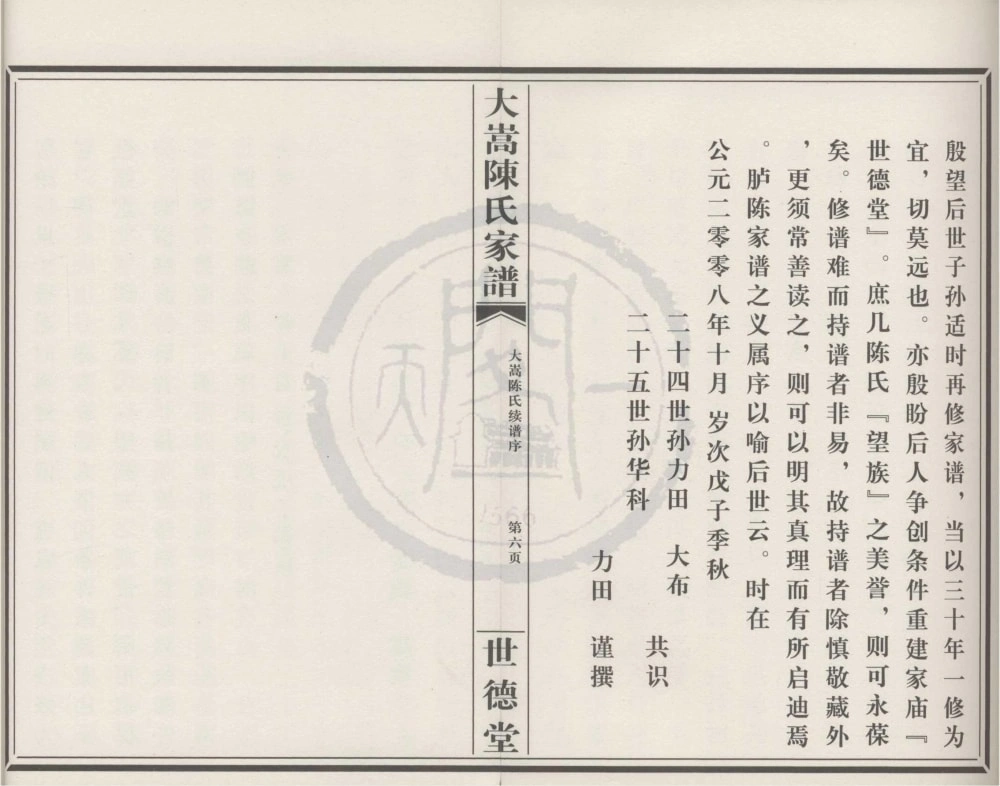 殷望后世子孙适时再修家谱，当以三十年一修为
宜，切莫远也。亦殷盼后人争创条件重建家庙『
世德堂』。庶几陈氏『望族』之美誉，则可永葆
矣。修谱难而持谱者非易，故持谱者除慎敬藏外
，更须常善读之，则可以明其真理而有所启迪焉
。胪陈家谱之义属序以喻后世云。时在
公元二零零八年十月 岁次戊子季秋
二十四世孙力田 大布
二十五世孙华科
共识
力田 谨撰
大嵩陳氏家譜
大嵩陈氏续谱序
第六页
世德堂
天
一
阁
1566